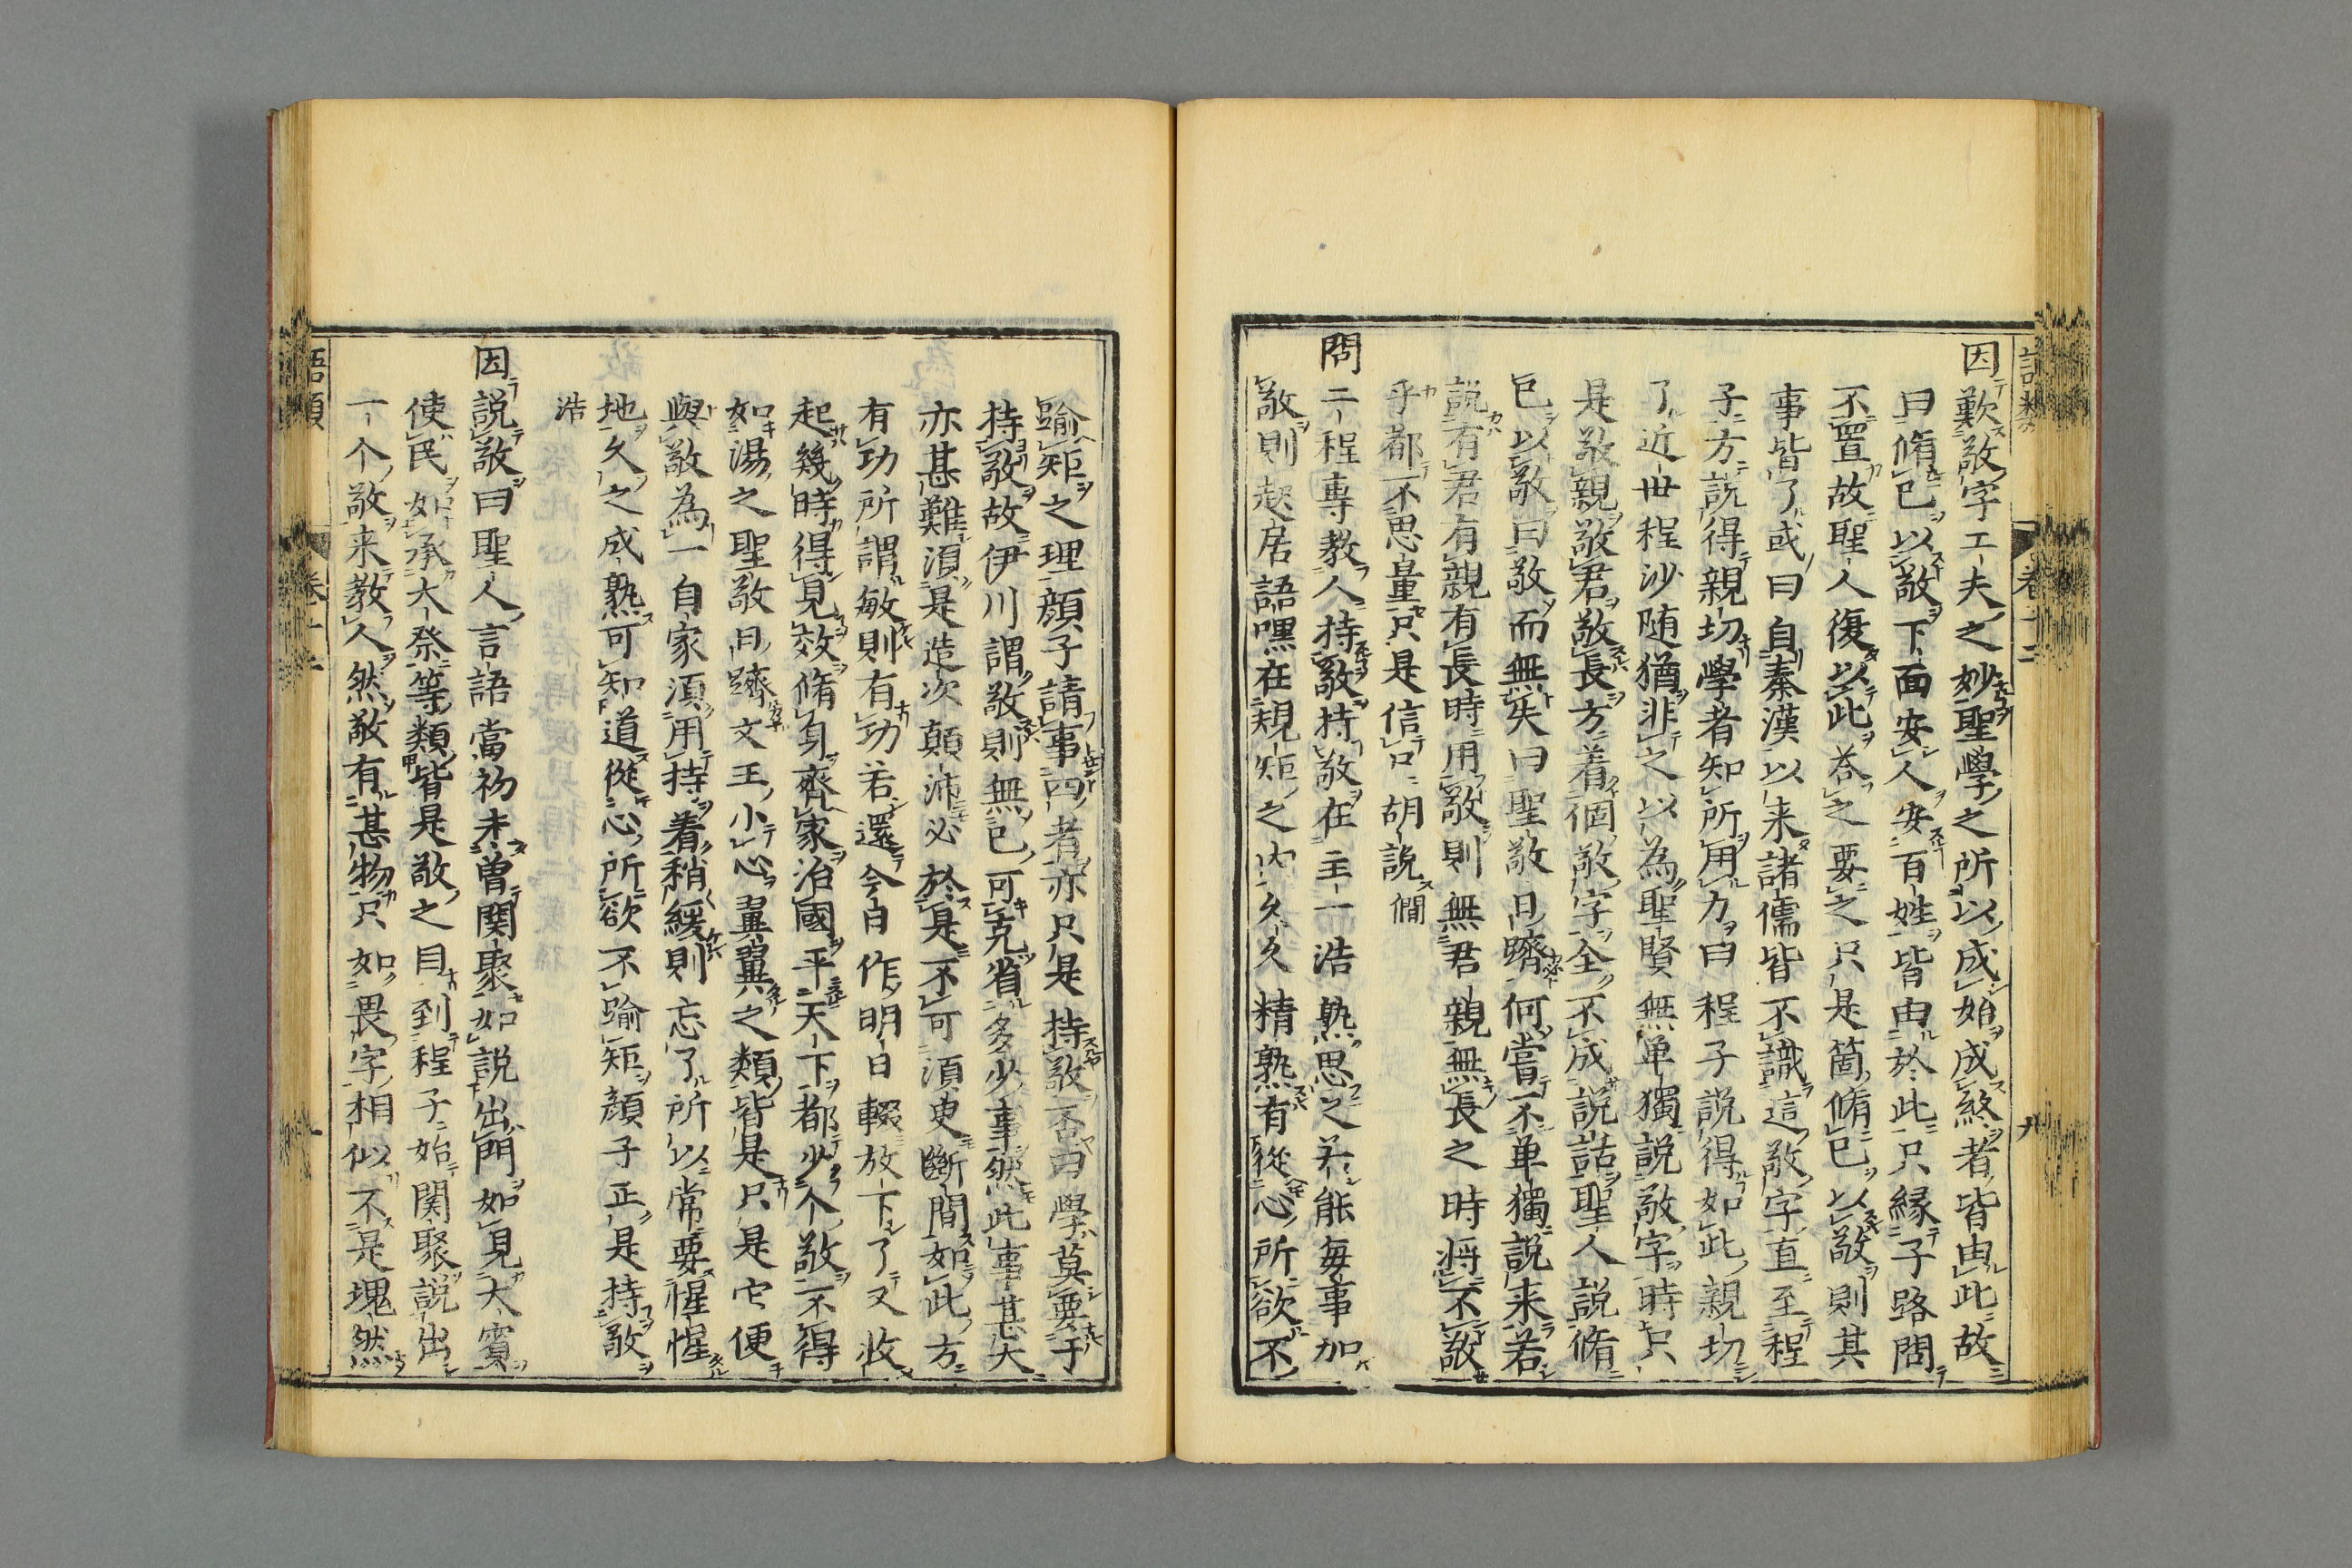 因歎敬字工夫之妙聖學之所以成始成終者皆由此故
曰脩已以敬下面安人安百姓皆由於此只縁子路問
不置故聖人復以此荅之要之只是箇脩已以敬則其
事皆了或曰自秦漢以来諸儒皆不識這敬字直至程
子方説得親切學者知所用力曰程子説得如此親切
了近世程沙随猶非之以為聖賢無単獨説敬字時只
是敬親敬君敬長方着個敬字全不成説話聖人説脩
已以敬曰敬而無失曰聖敬日躋何嘗不単獨説来若
説有君有親有長時用敬則無君親無長之時将不敬
乎都不思量只是信口胡説僩
問二程専教人持敬持敬在主一浩熟思之若能毎事加
敬則起居語嘿在規矩之内久久精熟有從心所欲不
踰矩之理顔子請事四者亦只是持敬否曰學莫要于
持敬故伊川謂敬則無已可克省多少事然此事甚大
亦甚難湏是造次顛沛必於是不可湏臾斷間如此方
有功所謂敏則有功若還今日作明日輟放下了又收
起幾時得見效脩身齊家治國平天下都少个敬不得
如湯之聖敬日躋文王小心翼翼之類皆是只是它便
與敬為一自家湏用持着稍緩則忘了所以常要惺惺
地久之成熟可知道從心所欲不踰矩顔子正是持敬
浩
因説敬曰聖人言語當初未曽関聚如説出門如見大賓
使民如承大祭等類皆是敬之目到程子始関聚説出
一个敬来教人然敬有甚物只如畏字相似不是塊然
語類
卷十二